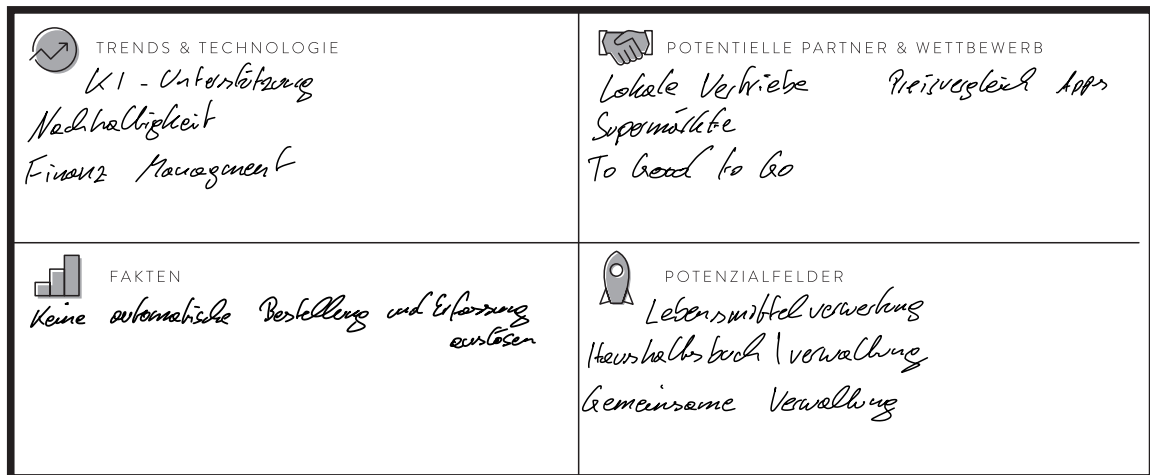 TRENDS & TECHNOLOGIE
KI - Unterstützung
Nachhaltigkeit
Finanz Managment
POTENTIELLE PARTNER & WETTBEWERB
Lokale Vertriebe Preisvergleich Apps
Supermärkte
To Good to Go
FAKTEN
Keine automatische Bestellung und Erfassung
auslösen
POTENZIALFELDER
Lebensmittelverwertung
Haushaltsbuch | verwaltung
Gemeinsame Verwaltung